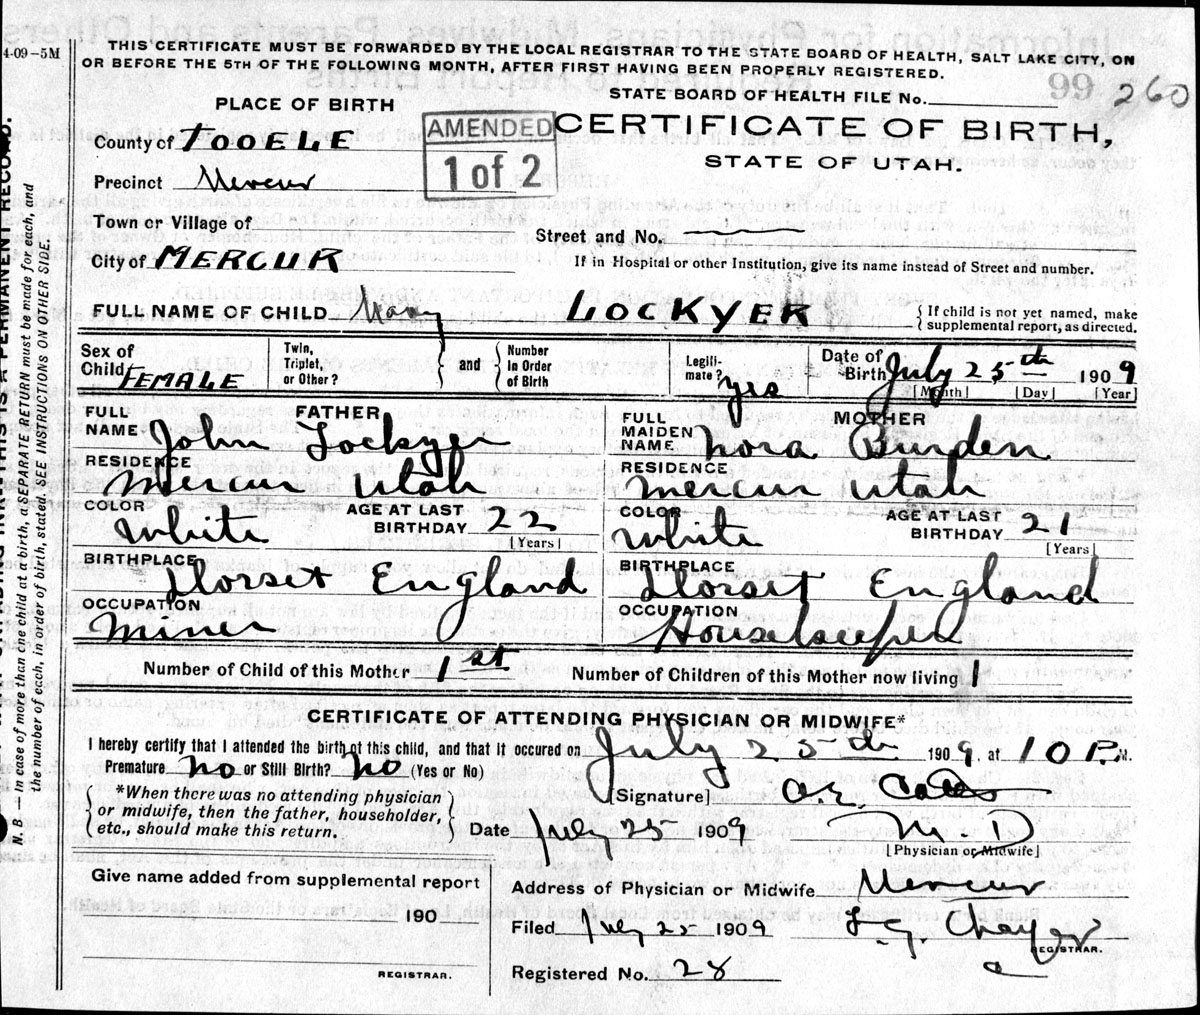 4-09-5M
THIS CERTIFICATE MUST BE FORWARDED BY THE LOCAL REGISTRAR TO THE STATE BOARD OF HEALTH, SALT LAKE CITY, ON
OR BEFORE THE 5TH OF THE FOLLOWING MONTH, AFTER FIRST HAVING BEEN PROPERLY REGISTERED.
STATE BOARD OF HEALTH FILE No. 99 260
PLACE OF BIRTH
AMENDED
1 of 2
CERTIFICATE OF BIRTH,
STATE OF UTAH.
County of TOOELE
Precinct Mercur
Town or Village of
Street and No.
City of MERCUR
If in Hospital or other Institution, give its name instead of Street and number.
FULL NAME OF CHILD LOCKYER
{ If child is not yet named, make
supplemental report, as directed.
Sex of
Child FEMALE
Twin,
Triplet,
or Other?
} and {
Number
in Order
of Birth
Legiti-
mate? yes
Date of
Birth July 25th 1909
[Month] [Day] [Year]
FATHER
FULL
NAME John Lockyer
RESIDENCE
Mercur Utah
COLOR
White
AGE AT LAST
BIRTHDAY 22
[Years]
BIRTHPLACE
Dorset England
OCCUPATION
Miner
MOTHER
FULL
MAIDEN
NAME Nora Burden
RESIDENCE
Mercur Utah
COLOR
White
AGE AT LAST
BIRTHDAY 21
[Years]
BIRTHPLACE
Dorset England
OCCUPATION
Housekeeper
Number of Child of this Mother 1st
Number of Children of this Mother now living 1
CERTIFICATE OF ATTENDING PHYSICIAN OR MIDWIFE*
I hereby certify that I attended the birth of this child, and that it occured on July 25th 1909, at 10 P.M.
Premature No or Still Birth? No (Yes or No)
{ *When there was no attending physician
or midwife, then the father, householder,
etc., should make this return. }
[Signature]
Date July 25 1909
M D
[Physician or Midwife]
Give name added from supplemental report
190
REGISTRAR.
Address of Physician or Midwife Mercur
Filed July 25 1909
REGISTRAR.
Registered No. 28
N. B.—In case of more than one child at a birth, a SEPARATE RETURN must be made for each, and
the number of each, in order of birth, stated. SEE INSTRUCTIONS ON OTHER SIDE.